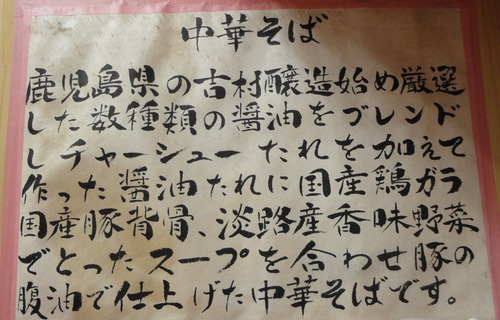 中華そば
鹿児島県の吉村醸造始め厳選
した数種類の醤油をブレンド
しチャーシューたれを加えて
作った醤油たれに国産鶏ガラ
国産豚背骨、淡路産香味野菜
でとったスープを合わせ豚の
腹油で仕上げた中華そばです。